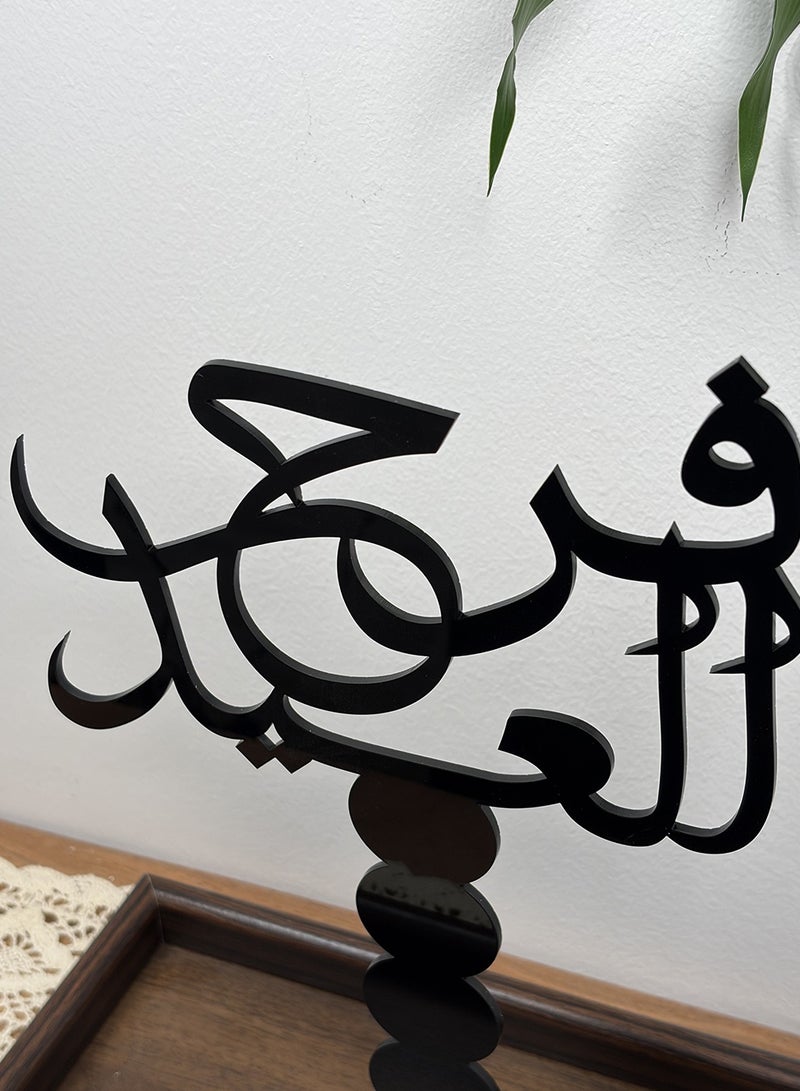 فرحة
العيد